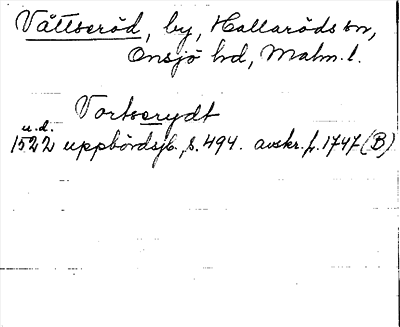 Våttseröd, by, Hallaröds sn,
Onsjö hd, Malm. l.
Vortserydt
u.d.
1522 uppbördsjb. s. 494. avskr. fr. 1747 (B)